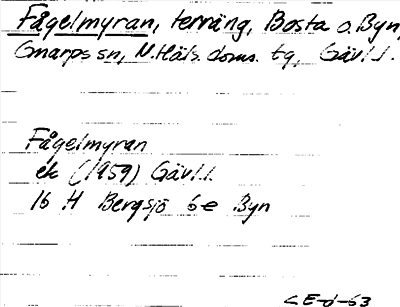 Fågelmyran, terräng, Bosta o. Byn,
Gnarps sn, N. Häls. doms. tg, Gävl.l.
Fågelmyran
ek (1959) Gävl.l.
16 H Bergsjö 6e Byn
CE-d-63